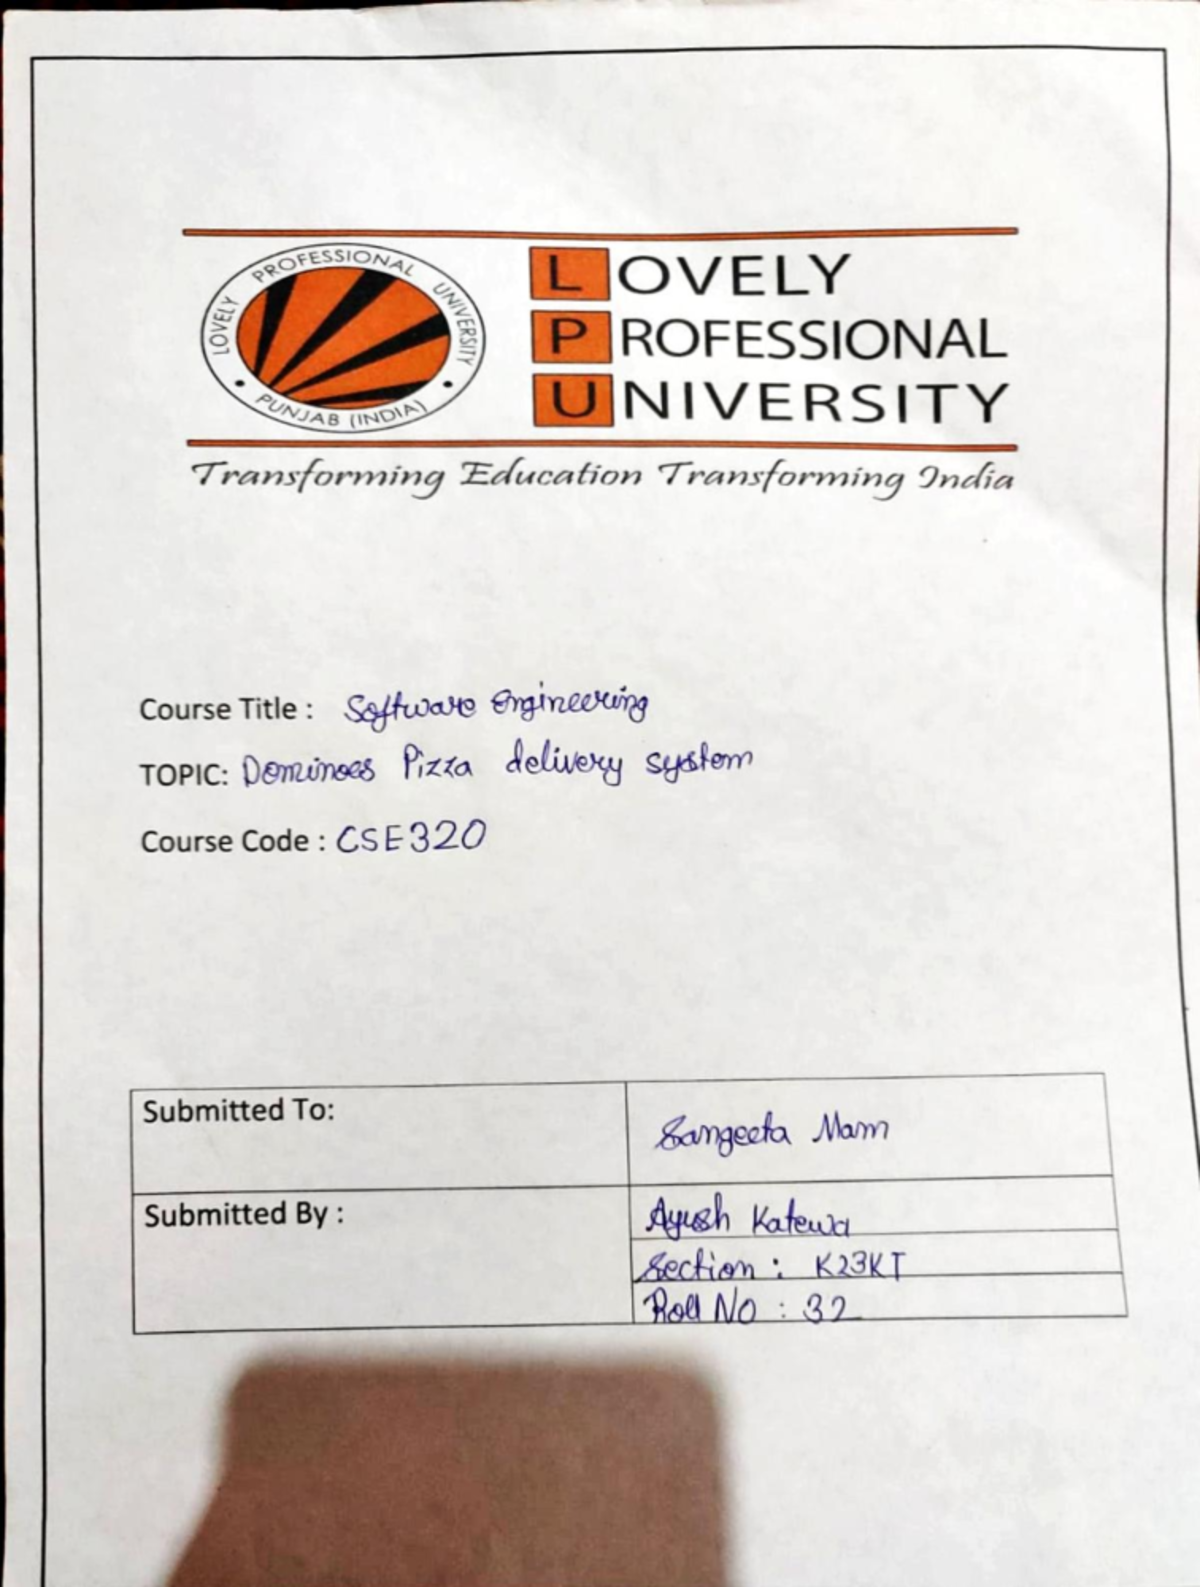 LOVELY PROFESSIONAL UNIVERSITY
PUNJAB (INDIA)
LOVELY
PROFESSIONAL
UNIVERSITY
Transforming Education Transforming India
Course Title : Software Engineering
TOPIC: Dominoes Pizza delivery system
Course Code : CSE320
Submitted To:
Sangeeta Mam
Submitted By :
Ayush Katewa
Section : K23KT
Roll No : 32